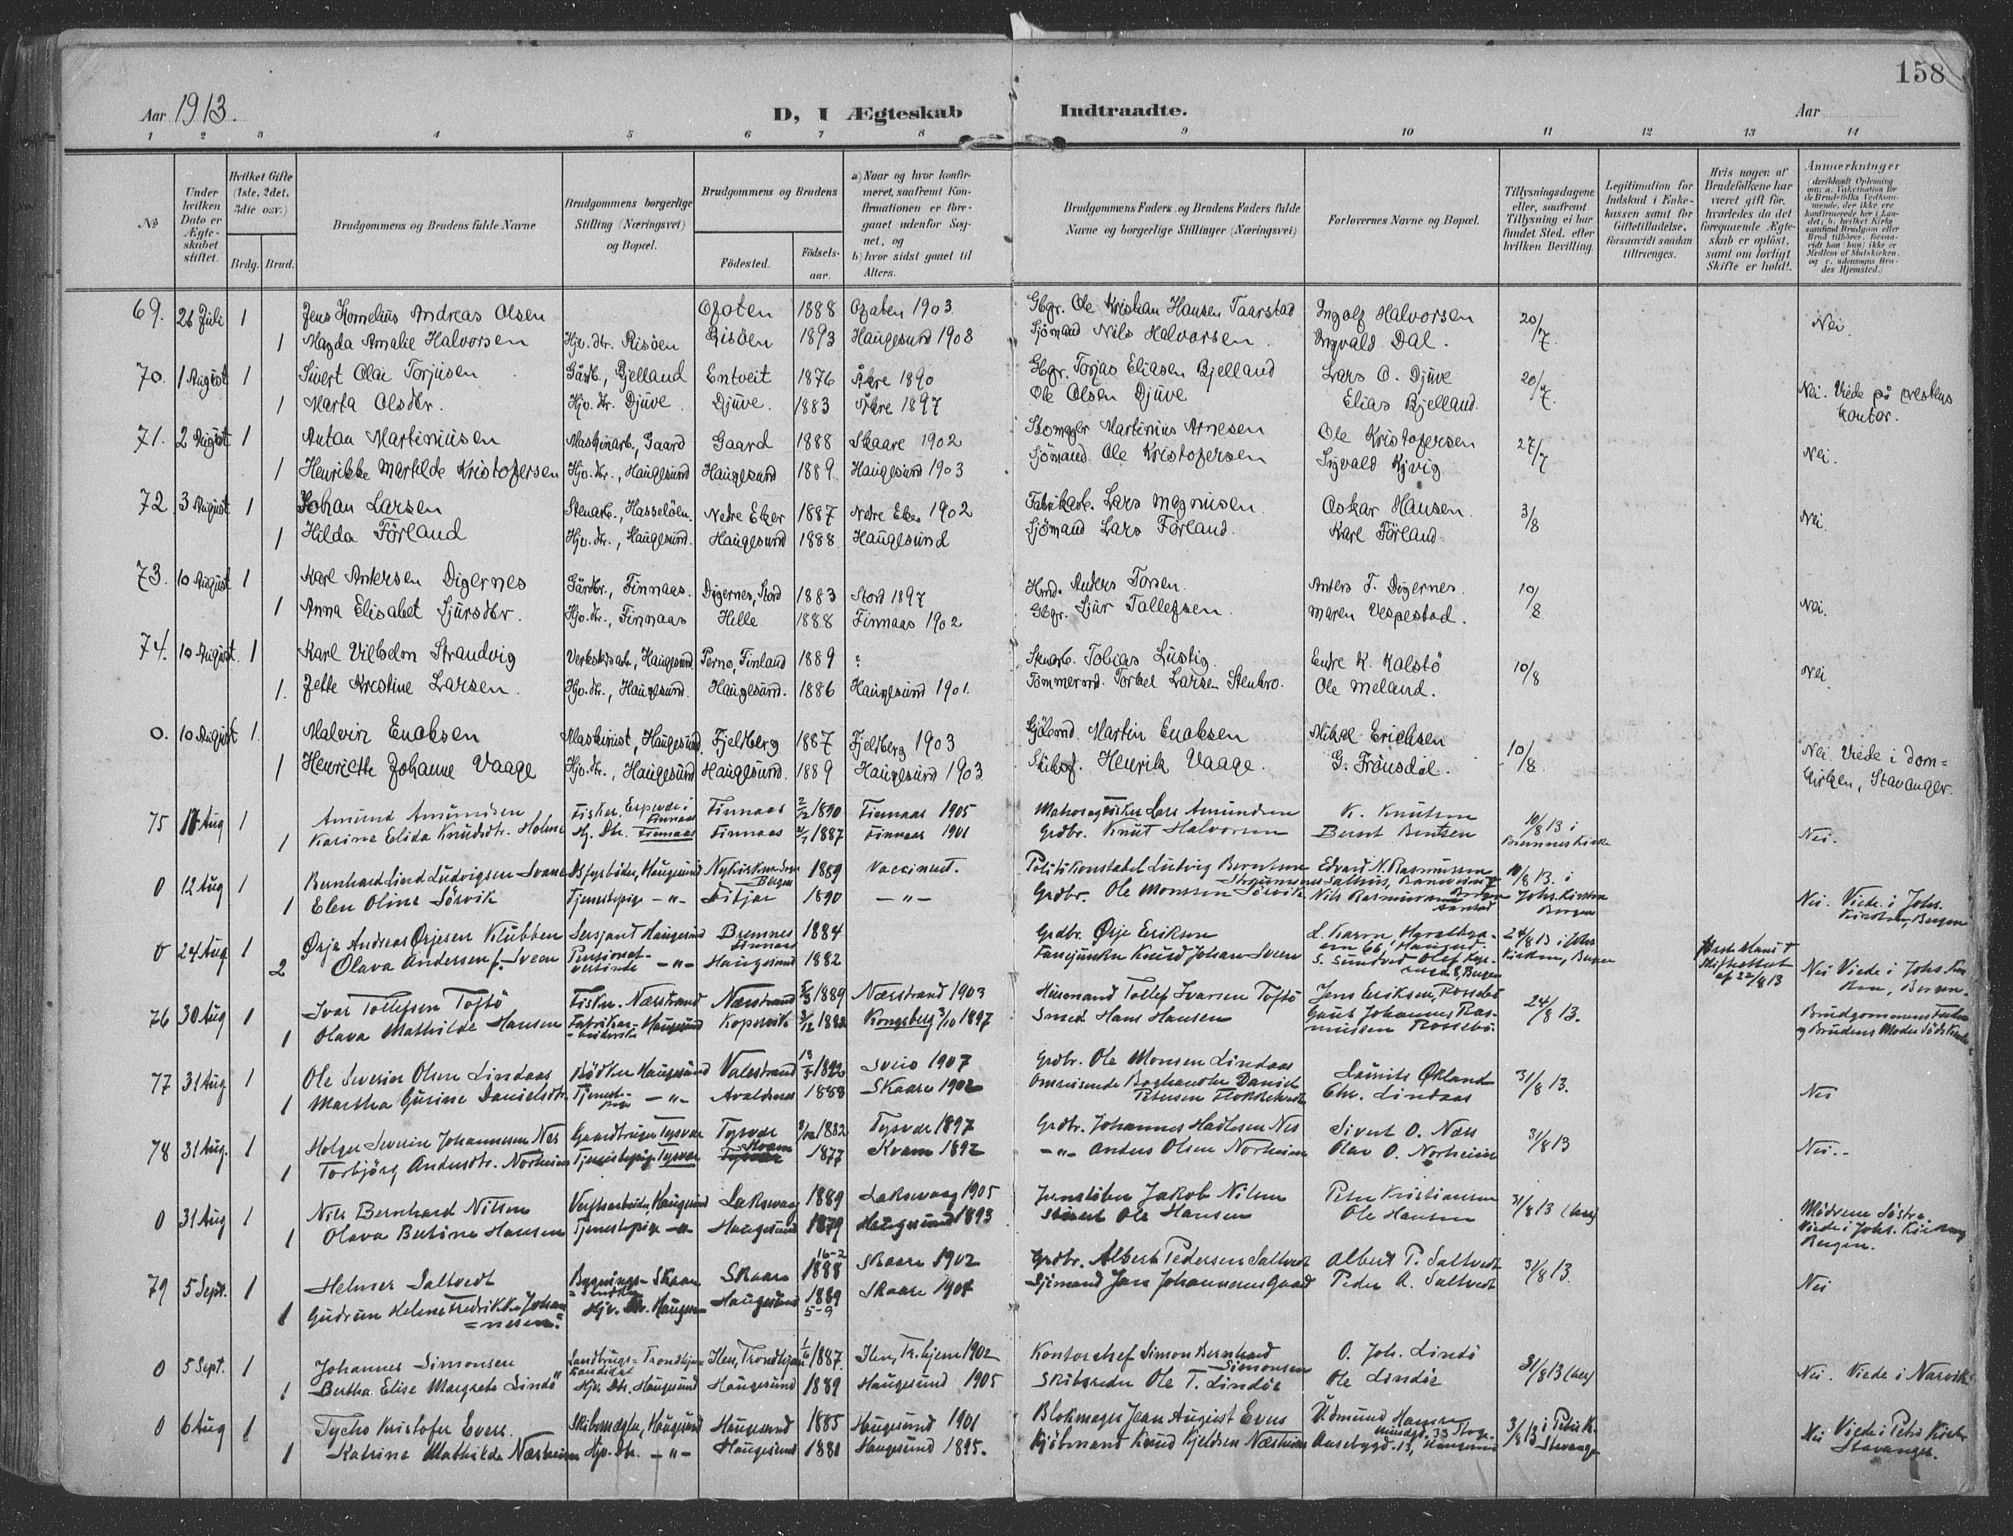 158
Aar 1913.
D, I Ægteskab Indtraadte.
Aar
1 2 3 4 5 6 7 8 9 10 11 12 13 14
No
Under hvilken Dato er Ægteskabet stiftet.
Hvilket Gifte (1ste, 2det, 3die osv.)
Brdg. Brud.
Brudgommens og Brudens fulde Navne
Brudgommens borgerlige Stilling (Næringsvei) og Bopæl.
Brudgommens og Brudens
Fødested.
Fødselsaar.
a) Naar og hvor konfirmeret, saafremt Konfirmationen er foregaaet udenfor Sognet, og
b) hvor sidst gaaet til Alters.
Brudgommens Faders og Brudens Faders fulde Navne og borgerlige Stillinger (Næringsvei)
Forlovernes Navne og Bopæl.
Tillysningsdagene eller, saafremt Tillysning ei har fundet Sted, efter hvilken Bevilling.
Legitimation for Indskud i Enkekassen samt for Giftetilladelse, forsaavidt saadan tiltrænges.
Hvis nogen af Brudefolkene har været gift før, hvorledes da det foregaaende Ægteskab er opløst, samt om lovligt Skifte er holdt.
Anmærkninger
69. 26 Juli 1 Jens Kornelius Andreas Olsen Ofoten 1888 Ofoten 1903 Gbgr. Ole Kristian Hansen Taarstad Ingolf Halvorsen 20/7 Nei.
1 Magda Amalie Halvorsen Hjv. dtr. Risöen Risöen 1893 Haugesund 1908 Sjömand Nils Halvorsen. Ingvald Dal.
70. 1 August 1 Sivert Olai Torjusen Gårdb., Bjelland Entveit 1876 Åkre 1890 Gbgr. Torjas Eliasen Bjelland Lars O. Djuve 20/7 Nei. Viede på prestens kontor.
1 Marta Olsdtr. Hjv. dtr. Djuve. Djuve. 1883 Åkre 1897 Ole Olsen Djuve Elias Bjelland.
71. 2 August 1 Anton Martiniusen Maskinarb., Gaard Gaard 1888 Skaare 1902 Skomager Martinius Arnesen Ole Kristofersen 27/7 Nei.
1 Henrikke Martilde Kristofersen Hjv. dtr., Haugesund Haugesund 1889 Haugesund 1903 Sjömand Ole Kristofersen Sigvald Kjvig
72 3 August 1 Johan Larsen Stenarb., Hasselöen. Nedre Eker 1887 Nedre Eker 1902 Fabrikarb. Lars Magnusen Oskar Hansen. 3/8 Nei.
1 Hilda Förland Hjv. dtr., Haugesund. Haugesund 1888 Haugesund Sjömand Lars Förland. Karl Förland.
73. 10 August 1 Karl Andersen Digernes Gårdbr., Finnaas. Digernes, Stord 1883 Stord 1897 Hmd. Anders Torsen Anders T. Digernes. 10/8 Nei.
1 Anna Elisabet Sjursdtr. Hjv. dtr., Finnaas Hille 1888 Finnaas 1902 Gbgr. Sjur Tallefsen. Maren Vespestad.
74. 10 August. 1 Karl Vilhelm Strandvig Verkstedsarb., Haugesund. Pernø, Finland 1889 ? Stenarb. Tobias Lustig Endre K. Kalstö 10/8 Nei.
1. Jette Kristine Larsen. Hjv. dtr., Haugesund. Haugesund. 1886 Haugesund 1901. Tömmermd. Torkel Larsen Stenbro. Ole Meland.
0. 10 August 1. Malvin Enoksen Maskinist, Haugesund. Fjeldberg 1887 Fjeldberg 1903 Martin Enoksen Mikal Erichsen 10/8 Nei. Viede i Domkirken, Stavanger.
1 Henriette Johanne Vaage Hjv. dtr., Haugesund Haugesund. 1889 Haugesund 1903 Henrik Vaage. G. Frönsdal.
75 11 Aug 1 Amund Amundsen Fisker, Espevær i Finnaas Finnaas 1890 Finnaas 1905 Matros og Fisker Lars Amundsen K. Knutsen 10/8 13 i Bremnes Kirke Nei.
1 Karine Elida Knudsdtr. Holme Hj. Dtr. Finnaas Finnaas 1887 Finnaas 1901 Grdbr. Knut Halvorsen Bernt Bentsen
0 12 Aug 1 Bernhard Ludvigsen Svane Haugesund Nykirken Sogn Bergen 1889 Vaccineret. Politikonstabel Ludvig Berntsen Edvard N. Rasmussen 10/8 13. i Johs. Kirken Bergen Nei. Viede i Johs. Kirken, Bergen
1 Elen Oline Sörvik Tjenestepige -"- Fitjar 1890 -"- Grdbr. Ole Monssen Sörvik Nils Rasmussen
0 24 Aug 1 Ørje Andreas Ørjesen Klubben Sersjant Haugesund Bremnes Finnaas 1884 Grdbr. Ørje Eriksen 24/8 13 i Johs Kirken, Bergen Nei Viede i Johs. Kirken, Bergen.
2 Olava Andersen f. Sveen Pensionatvertinde -"- Haugesund 1882 Knud Johan Sveen S. Sundvor
76 30 Aug 1 Ivar Tollefsen Toftö Fisker. Nærstrand Nærstrand 1889 Nærstrand 1903 Husmand Tollef Ivarsen Toftö Jens Eriksen, Rossebö 24/8 13. Brudgommens Fader og Brudens Moder
1 Olava Mathilde Hansen Fabrikarbeiderske Haugesund Kopervik 1882 Kongsberg 3/10 1897 Smed Hans Hansen Gaut Johannes Rasmussen Rossebö.
77 31 Aug 1 Ole Severin Olsen Lindaas Bödker Haugesund Valestrand Sveio 1907 Grdbr. Ole Monsen Lindaas Laurits Økland 31/8 13. Nei
1 Martha Gurine Danielsdtr. Tjenestepige -"- Avaldsnes 1888 Skaare 1902 Omreisende Boghandler Daniel Petersen Chr. Lindaas
78 31 Aug. 1 Holger Severin Johannessen Nes Gaardbruger Tysvær Tysvær 1882 Tysvær 1897 Grdbr. Johannes Nes Sivert O. Næs 31/8 13 Nei.
1 Torbjörg Andersdtr. Norheim Tjenestepige Tysvær Kvam 1877 Kvam 1892 -"- Anders Olsen Norheim Olav O. Norheim
0 31 Aug 1 Nils Bernhard Nilsen Haugesund Laksevaag 1889 Laksevaag 1905 Jakob Nilsen Peter Kristiansen 31/8 13 Mödrene Söstre Viede i Johs. Kirken, Bergen.
1 Olava Bertine Hansen Tjenestepige -"- Haugesund 1879 Haugesund 1893 Ole Hansen Ole Hansen
79 5 Sept. 1 Helmer Saltvedt Skaare Skaare 16-2 1888 Skaare 1902 Grdbr. Albert Pedersen Saltvedt Albert P. Saltvedt 31/8 13. Nei
1 Gudrun Helene Fredrikke Johannesen. Hjv. Dtr. Haugesund 1889 5-9 Skaare 1904 Sjömand Jans Johannesen Gaard Peder A. Saltvedt
0 5 Sept. 1 Johannes Simonsen Landbrugskandidat Trondhjem Ilen, Trondhjem 1/6 1887. Ilen, Tr.hjem 1902 Kontorchef Simon Bernhard Simonsen O. Joh. Lindö 31/8 13 Nei. Viede i Narvik
1 Bertha Elise Margrete Lindö Hjv. Dtr. Haugesund Haugesund 1889 Haugesund 1905 Skibsreder Ole T. Lindöe Ole Lindöe
0 6 Aug 1 Tycho Kristofer Evers Skibsmægler, Haugesund Haugesund 1885 Haugesund 1901 Blokmager Jean August Evers 3/8 13 i Petri K. Stavanger Nei Viede i Petri Kirke Stavanger.
1 Katrine Mathilde Næsheim Hjv. dtr. -"- Haugesund 1881 Haugesund 1895. Kjöbmand Knud Kjeldsen Næsheim Haugesund